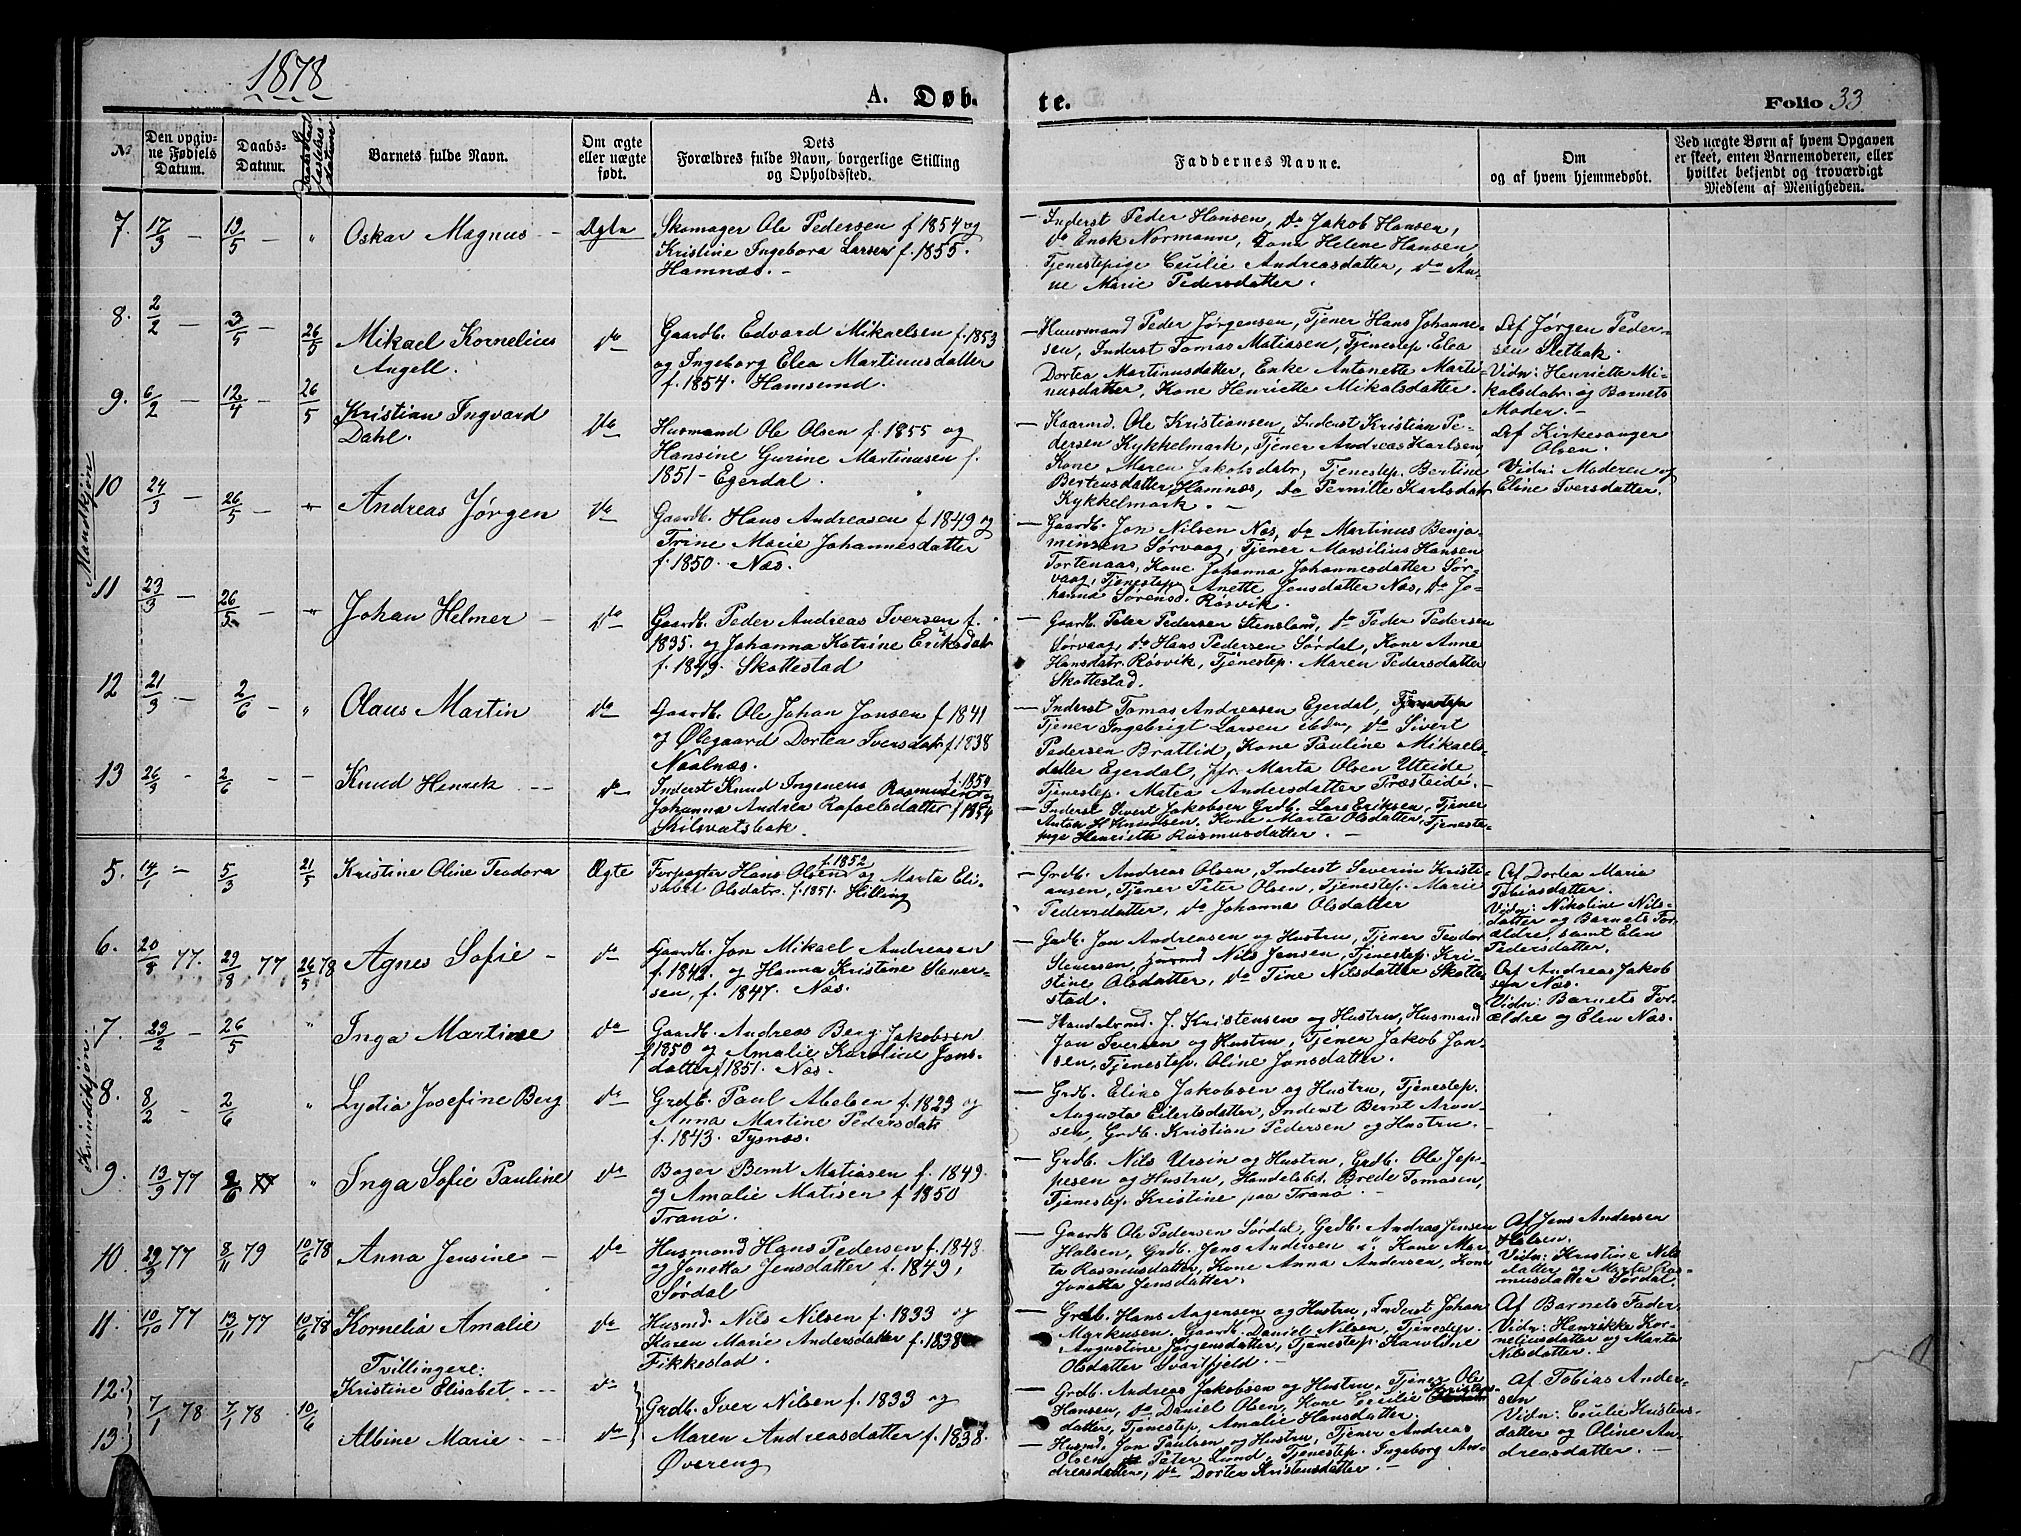 1878
A. Døb-
te.
Folio 33
№
Den opgiv-
ne Fødsels
Datum.
Daabs-
Datum.
Barnets fulde Navn.
Om ægte
eller uægte
født.
Dets
Forældres fulde Navn, borgerlige Stilling
og Opholdssted.
Faddernes Navne.
Om
og af hvem hjemmedøbt.
Ved uægte Børn af hvem Opgaven
er skeet, enten Barnemoderen, eller
hvilket bekjendt og troværdigt
Medlem af Menigheden.
Mandkjøn
7. 17/3 — 19/5 — „ Oskar Magnus — Ægte
Skomager Ole Pedersen f 1854 og
Kristine Ingebora Larsen f. 1855.
Hamnæs. —
— Inderst Peder Hansen, do Jakob Hansen,
do Ensk Normann, Kone Helene Hansen,
Tjenestepige Cecilie Andreasdatter, do An-
ne Marie Pedersdatter.
8. 2/2 — 3/5 — 26/5 Mikael Kornelius
Angell. do
Gaardb. Edvard Mikaelsen f. 1853
og Ingeborg Elea Martinusdatter
f. 1854. Hamsund.
— Huusmand Peder Jørgensen, Tjener Hans Johanne-
sen, Inderst Tomas Matiasen, Tjenestep. Elea
Dortea Martinusdatter, Enke Antonette Marti-
nusdatter, Kone Henriette Mikalsdatter.
Af Jørgen Peder-
sen Sletbak.
Vidn: Henriette Mi-
kalsdatr. og Barnets
Moder. —
9. 6/2 — 12/4 — 26/5 Kristian Ingvard
Dahl. do
Husmand Ole Olsen f. 1855 og
Hansine Gurine Martinusen f.
1851 — Egerdal.
— Kaarmd. Ole Kristiansen, Inderst Kristian Pe-
dersen Kykkelmark, Tjener Andreas Karlsen,
Kone Maren Jakobsdatr, Tjenestep. Bertine
Bertensdatter Hamnæs, do Pernille Karlsdatr
Kykkelmark. —
Af Kirkesanger
Olsen.
Vidn: Moderen og
Eline Iversdatter.
10 24/3 — 26/5 — „ Andreas Jørgen do
Gaardb. Hans Andreasen f 1849 og
Trine Marie Johannesdatter
f. 1850. Næs.
— Gaardb. Jon Nilsen Næs, do Martinus Benja-
minsen Sørvaag, Tjener Marsilius Hansen
Tortenaas, Kone Johanna Johannesdatter Sør-
vaag, Tjenestep. Anette Jonsdatter Næs, do Jo-
hanna Sørensd. Røsvik.
11 23/3 — 26/5 — „ Johan Helmer — do
Gaardb. Peder Andreas Iversen f.
1835. og Johanna Katrine Eriksdatr
f. 1849. Skottestad
— Gaardb. Peter Pedersen Stensland, do Peder Pedersen
Sørvaag, do Hans Pedersen Sørdal, Kone Anne
Hansdatr. Røsvik, Tjenestep. Maren Pedersdatter
Skottestad.
12 21/3 — 2/6 — „ Olaus Martin do
Gaardb. Ole Johan Jonsen f 1841
og Ølegaard Dortea Iversdatr f. 1838
Naalnæs.
— Inderst Tomas Andreasen Egerdal,
Tjener Ingebrigt Larsen ibdm, do Sivert
Pedersen Brattlid, Kone Pauline Mikaels-
datter Egerdal, Jfr. Marta Olsen Utteide
Tjenestep. Matea Andersdatter Træsteide. —
13 26/3 — 2/6 — — Knud Henrik — do
Inderst Knud Ingenius Rasmussen f. 1850 og
Johanna Andrea Rafaelsdatter f 1854
Skilsvatsbak.
— Inderst Sivert Jakobsen Grdb. Lars Eriksen, Tjener
Anton Knudsen. Kone Marta Olsdatter, Tjeneste-
pige Henriette Rasmusdatter. —
Kvindekjøn
5. 14/1 — 5/3 21/5 Kristine Oline Teodora Ægte
Forpagter Hans Olsen f. 1852 og Marta Eli-
sabet Olsdatr. f. 1851. Hilling
— Grdb. Andreas Olsen, Inderst Severin Kristi-
ansen, Tjener Peter Olsen, Tjenestep. Marie
Pedersdatter, do Johanna Olsdatter
Af Dortea Maria
Tobiasdatter.
Vidn: Nikoline Nils-
datter og Barnets For-
ældre, samt Elen
Pedersdatter.
6. 20/8 77. 29/8 77 26/5 78 Agnes Sofie — do
Gaardb. Jon Mikael Andreasen
f. 1842. og Hanna Kristine Stener-
sen, f. 1847. Næs.
— Grdb. Jon Andreasen og Hustru, Tjener Teodor
Stenersen, Nils Jensen, Tjenestep. Kri-
stine Olsdatter, do Tine Nilsdatter Skotte-
stad.
Af Andreas Jakob-
sen Næs.
Vidn: Barnets For-
ældre og Elen Næs.
7. 23/2 — 26/5 „ Inga Martine do
Gaardb. Andreas Berg Jakobsen
f 1850 og Amalie Karoline Jons-
datter f 1851. Næs.
— Handelsmd. J. Kristensen og Hustru, Husmand
Jon Iversen og Hustru, Tjener Jakob Jon-
sen, Tjenestep. Oline Jonsdatter.
8. 8/2 — 2/6 „ Lydia Josefine Berg do
Grdb. Paul Abelsen f. 1823 og
Anna Martine Pedersdatr
f. 1843. Tysnæs.
— Grdb. Elias Jakobsen og Hustru, Tjenestep.
Augusta Eilertsdatter, Inderst Bernt Aron-
sen, Grdb. Kristian Pedersen og Hustru.
9. 13/9 77 2/6 „ Inga Sofie Pauline do
Bager Bernt Matiasen f. 1849.
og Amalie Matisen f. 1850
Tranø.
— Grdb. Nils Ursin og Hustru, Grdb. Ole Jep-
pesen og Hustru, Handelsbet. Brede Tomasen,
Tjenestep. Kristine paa Tranø. —
10 29/9 77 8/11 79 10/6 78 Anna Jensine — do
Husmand Hans Pedersen f. 1848.
og Jonetta Jensdatter f. 1849,
Sørdal
— Gaardb Ole Pedersen Sørdal, Grdb. Andreas Jensen
Halsen, Grdb. Jens Andersen Kone Mar-
ta Rasmusdatter, Kone Anna Andersen, Kone
Jonetta Jensdatter.
Af Jens Andersen
Halsen.
Vidn: Kristine Nils
datter og Marta Ras-
musdatter Sørdal.
11. 10/10 77 13/11 77 10/6 78 Kornelia Amalie do
Husmd. Nils Nilsen f. 1833 og
Karen Marie Andersdatter f. 1838
Fikkestad.
— Grdb. Hans Aagensen og Hustru, Inderst Johan
Markusen. Gaardb. Daniel Nilsen, Tjenestep.
Augustine Jørgensdatter, Tjenestep. Karoline
Olsdatter Svartfjeld. —
Af Barnets Fader
Vidn: Henrikke Kor-
neliusdatter og Marta
Nilsdatter. —
Tvillingere:
12. 7/1 78 7/1 78 10/6 Kristine Elisabet — do
13. Albine Marie — do
Grdb. Iver Nilsen f. 1833 og
Maren Andreasdatter f. 1838.
Øvereng
— Grdb. Andreas Jakobsen og Hustru, Tjener Ole
Hansen, do Daniel Olsen, Kone Cecilie Kristens-
datter, Tjenestep. Amalie Hansdatter.
— Husmd. Jon Paulsen og Hustru, Tjener Andreas
Olsen, do Peter Lund, Tjenestep. Ingeborg An-
dreasdatter, do Dortea Kristensdatter. —
Af Tobias Ander-
sen
Vidn: Cecilie Kristens-
datter og Oline An-
dreasdatter. —